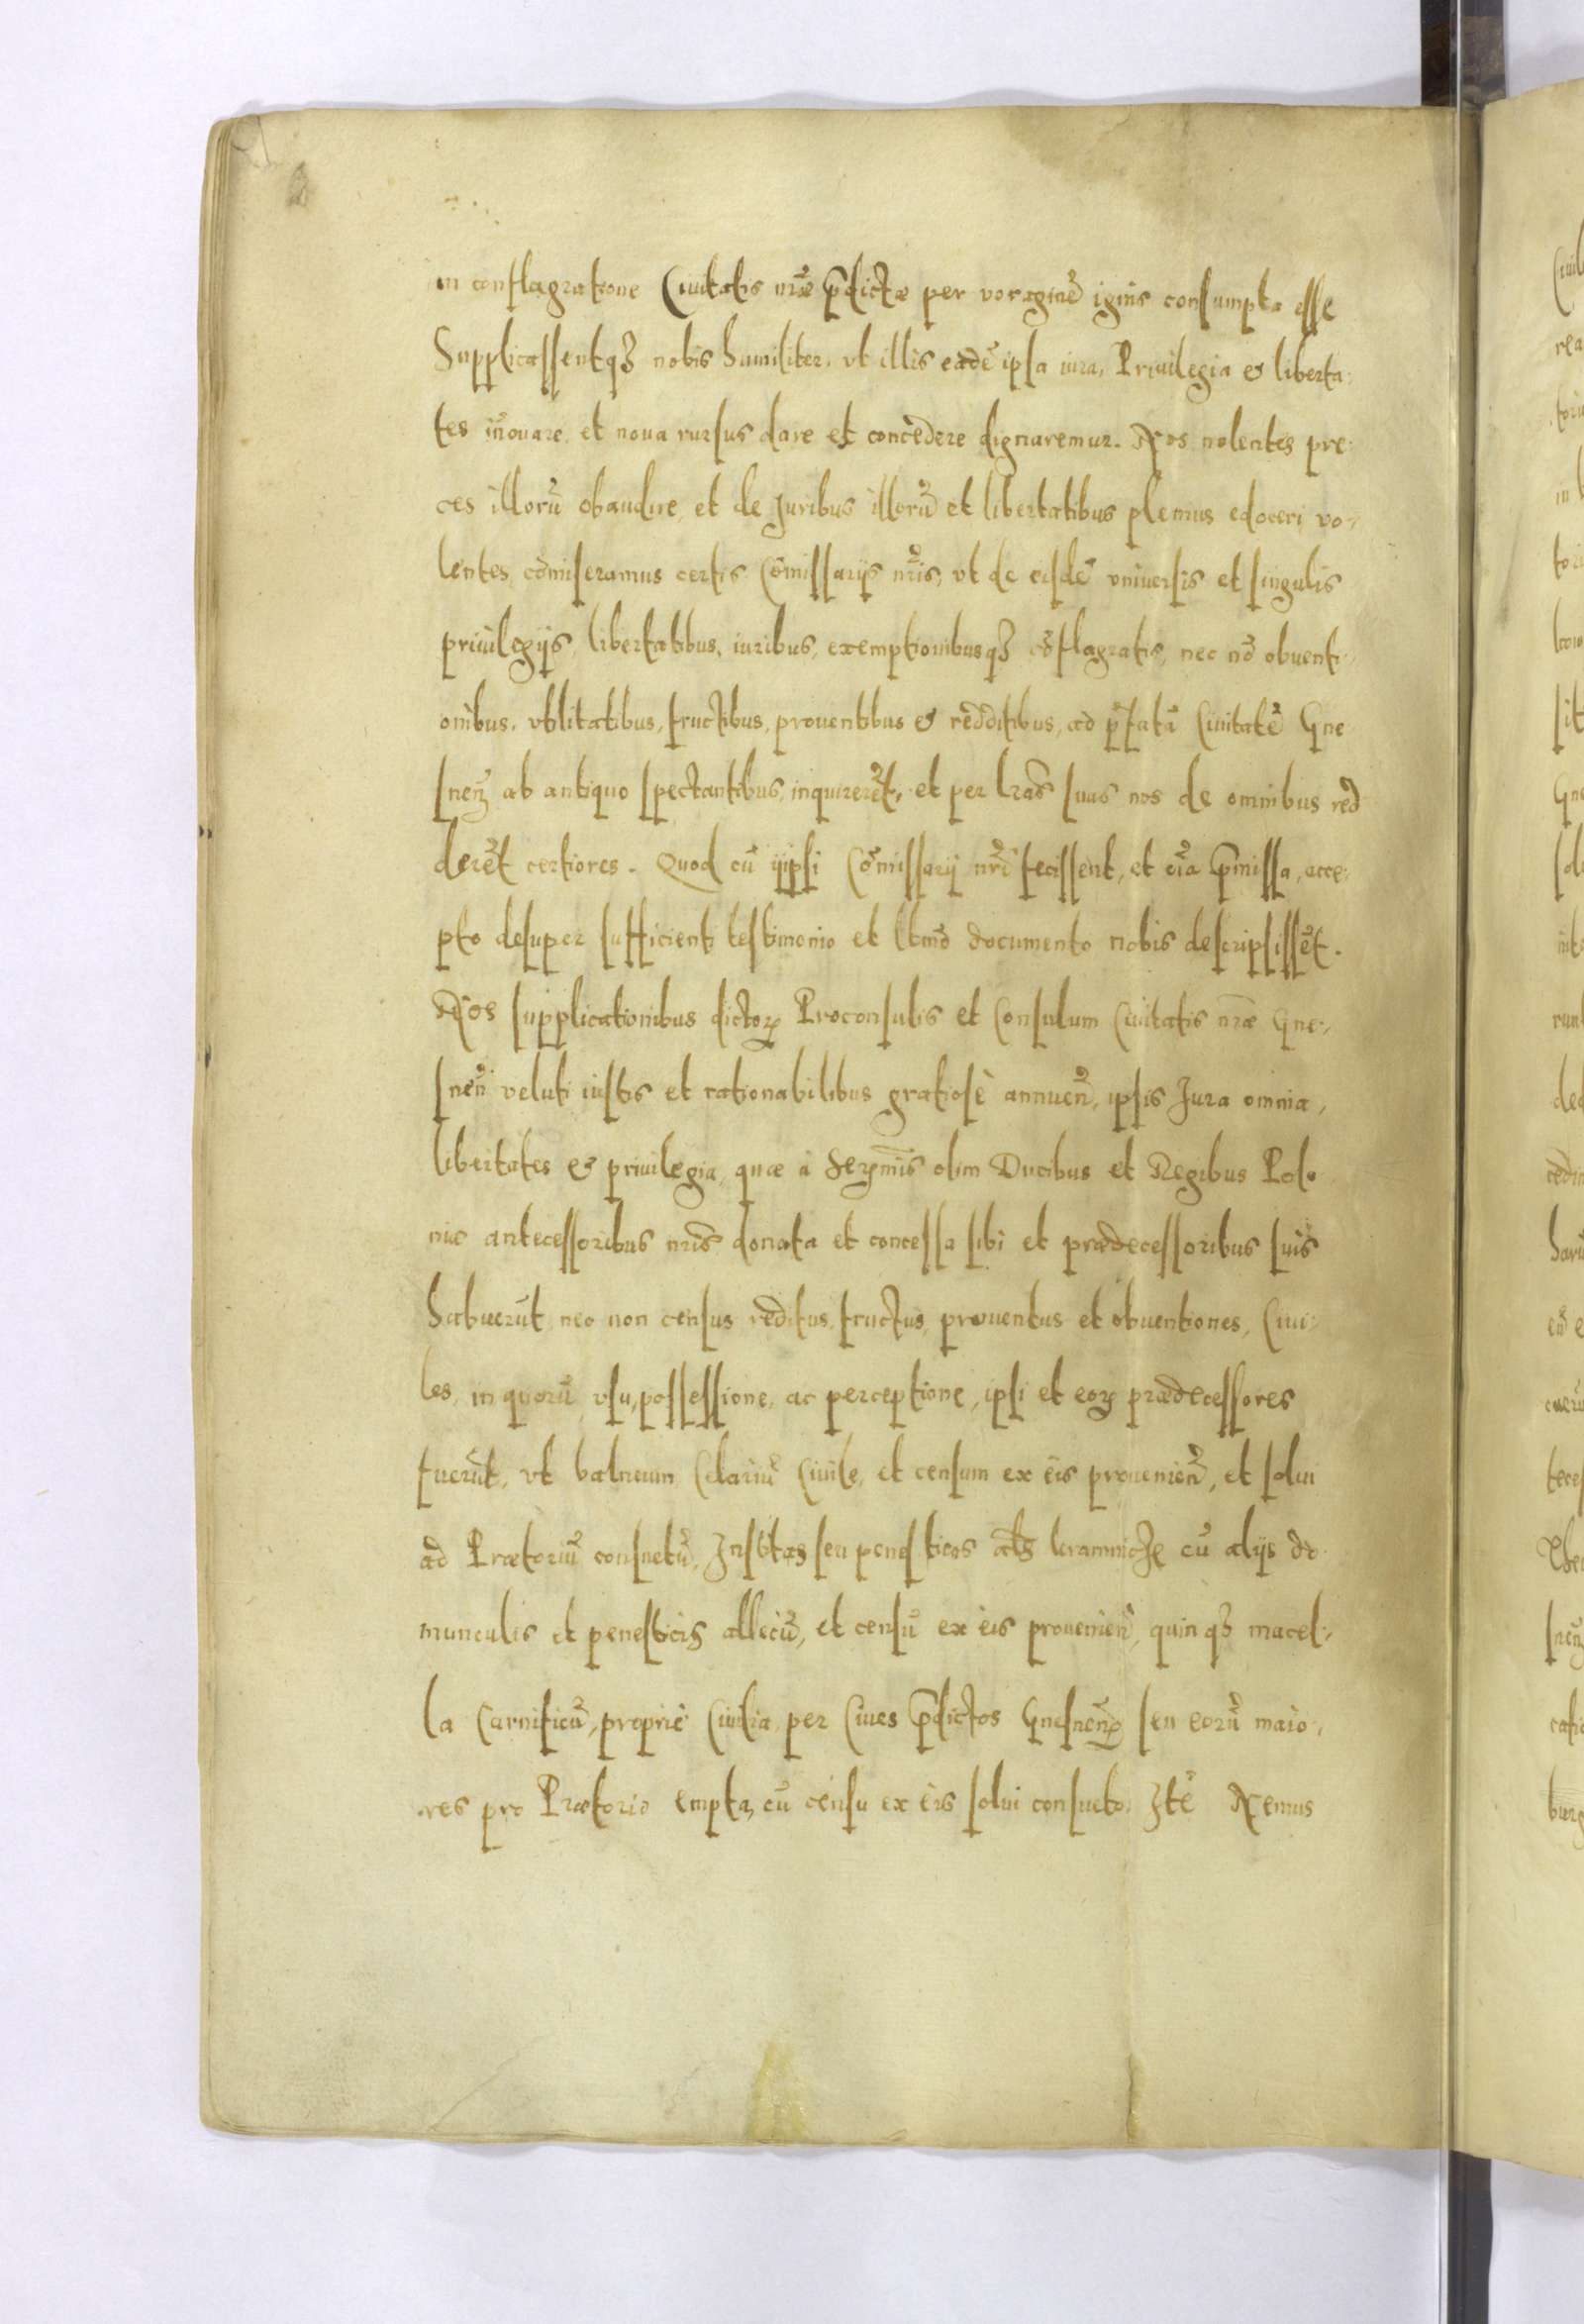 in conflagratione Ciuitatis nr̃æ p̃dictæ per voraginẽ ignis consumpta esse
Supplicassentqȝ nobis humiliter, vt illis eadẽ ipsa iura, Priuilegia & liberta:
tes iñouare, et noua rursus dare et concedere dignaremur. Nos nolentes pre:
ces illorũ obaudire, et de Iuribus illorũ et libertatibus plenius edoceri vo:
lentes, cõmiseramus certis Cõmissarijs nr̃is, vt de eisdẽ vniuersis et singulis
priuilegijs, libertatibus, iuribus, exemptionibusqȝ cõflagratis, nec nõ obuenti
onibus, vtilitatibus, fructibus, prouentibus & redditibus, ad p̃fatã Ciuitatẽ Gne
snenȝ ab antiquo spectantibus, inquirerẽt, et per lr̃as suas nos de omnibus red
derẽt certiores. Quod cũ ijpsi Cõmissarij nr̃i fecissent, et oĩa p̃missa, acce:
pto desuper sufficienti testimonio et ltimo documento nobis descripsissẽt.
Nos supplicationibus dictoꝝ Proconsulis et Consulum Ciuitatis nr̃æ Gne:
sneñ veluti iustis et rationabilibus gratiosè annueñ, ipsis Iura omnia,
libertates & priuilegia, quæ à Serꝫmis olim Ducibus et Regibus Polo
niæ antecessoribus nr̃is donata et concessa sibi et prædecessoribus suis
habuerũt, nec non census reditus, fructus, prouentus et obuentiones, Ciui:
les, in quorũ vsu, possessione, ac perceptione, ipsi et eoꝝ prædecessores
fuerũt, vt balneum Celariũ Ciuile, et censum ex eis prouenieñ, et solui
ad Prætoriũ consuetũ, Institas seu penesticos als kramnicze cũ alijs do
munculis et penesticis allecũ, et censũ ex eis prouenieñ, quinqȝ macel:
la Carnificũ, propriè Ciuilia, per Ciues p̃dictos Gnesneñ seu eorũ maio,
res pro Prætorio empta, cũ censu ex eis solui consueto. Itẽ Nemus